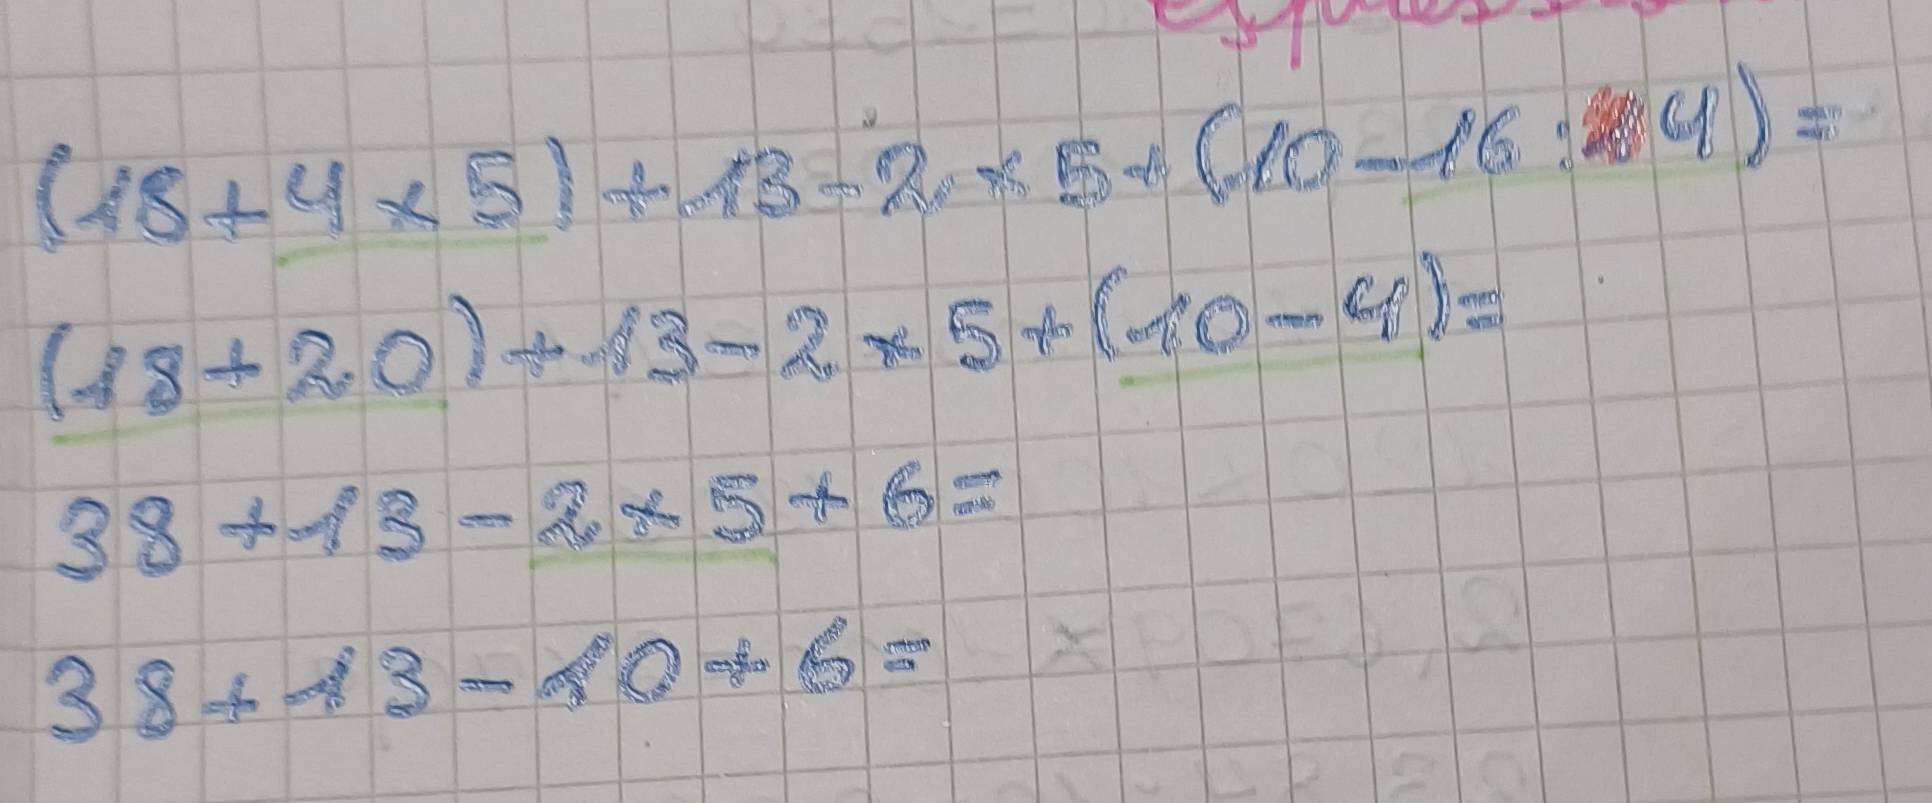 (18+4×5)+13-2×5+(10-16:4)=
(18+20)+13-2×5+(10-4)=
38+13-2×5+6=
38+13-10+6=